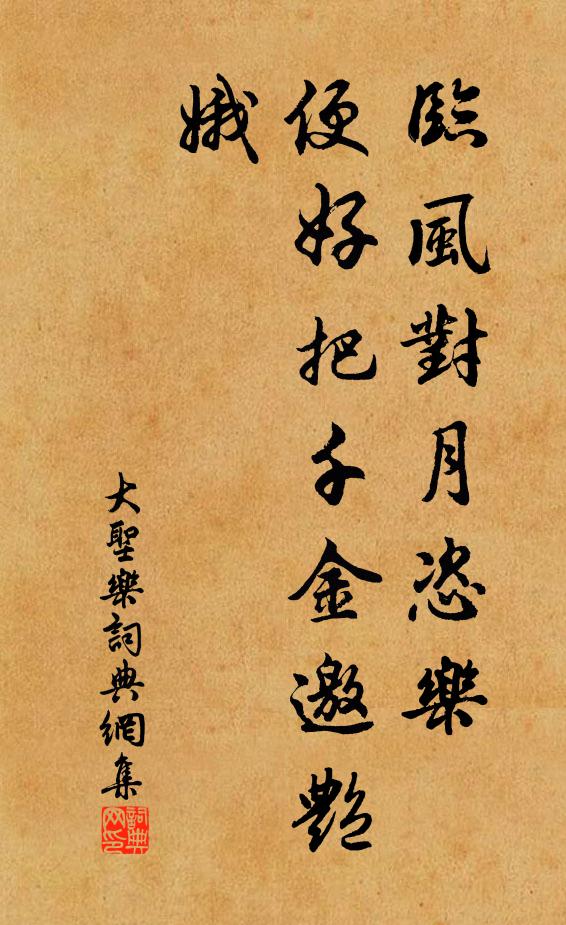 臨風對月恣樂
便好把千金邀艷
娥
大聖樂詞典網集
詞典网印